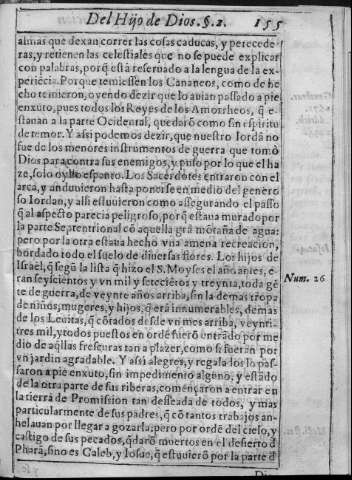 Del Hijo de Dios. §. 1. 155
almas que dexan correr las cosas caducas, y perecede
ras, y retienen las celestiales que no se puede explicar
con palabras, porq̃ està reseruado a la lengua de la ex-
periẽcia. Porque temiessen los Cananeos, como de he
cho temieron, oyendo dezir que lo auian passado a pie
enxuto, pues todos los Reyes de los Amorrheos, q̃ e-
stauan a la parte Ocidental, quedarõ como sin espiritu
de temor. Y assi podemos dezir, que nuestro Iordã no
fue de los menores instrumentos de guerra que tomò
Dios para contra sus enemigos, y puso por lo que el ha
ze, solo oyllo espanto. Los Sacerdotes entraron con el
arca, y anduuieron hasta ponerse en medio del genero
so Iordan, y alli estuuieron como assegurando el passo
q̃ al aspecto parecia peligroso, porq̃ estaua murado por
la parte Septentrional cõ aquella grã mõtaña de agua:
pero por la otra estaua hecho vna amena recreacion,
bordado todo el suelo de diuersas flores. Los hijos de
Israel, q̃ segũ la lista q̃ hizo el S. Moyses el año antes, e-
ran seyscientos y vn mil y setecietos y treynta, toda gẽ
te de guerra, de veynte años arriba, sin la demas tropa
de niños, mugeres, y hijos, q̃ erã innumerables, demas
de los Leuitas, q̃ cõtados desde vn mes arriba, veynti-
tres mil, y todos puestos en ordẽ fuerõ entrãdo por me
dio de aq̃llas frescuras tan a plazer, como si fueran por
vn jardin agradable. Y assi alegres, y regalados lo pas-
saron a pie enxuto, sin impedimento alguno, y estãdo
de la otra parte de sus riberas, començaron a entrar en
la tierra de Promission tan desseada de todos, y mas
particularmente de sus padres, q̃ cõ tantos trabajos an-
helauan por llegar a gozarla, pero por ordẽ del cielo, y
castigo de sus pecados, q̃darõ muertos en el desierto d̃
Pharã, sino es Caleb, y Iosue, q̃ estuuierõ por la parte d̃
Num. 26